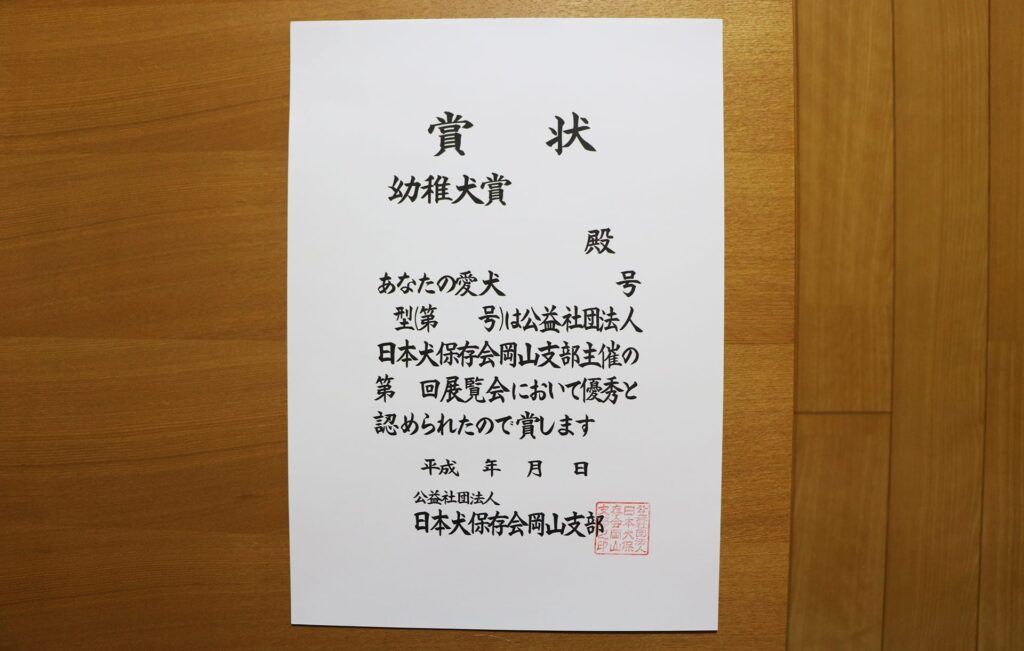 賞 状
幼稚犬賞
殿
あなたの愛犬 号
型(第 号)は公益社団法人
日本犬保存会岡山支部主催の
第 回展覧会において優秀と
認められたので賞します
平成 年 月 日
公益社団法人
日本犬保存会岡山支部
社団法人
日本犬保
存会岡山